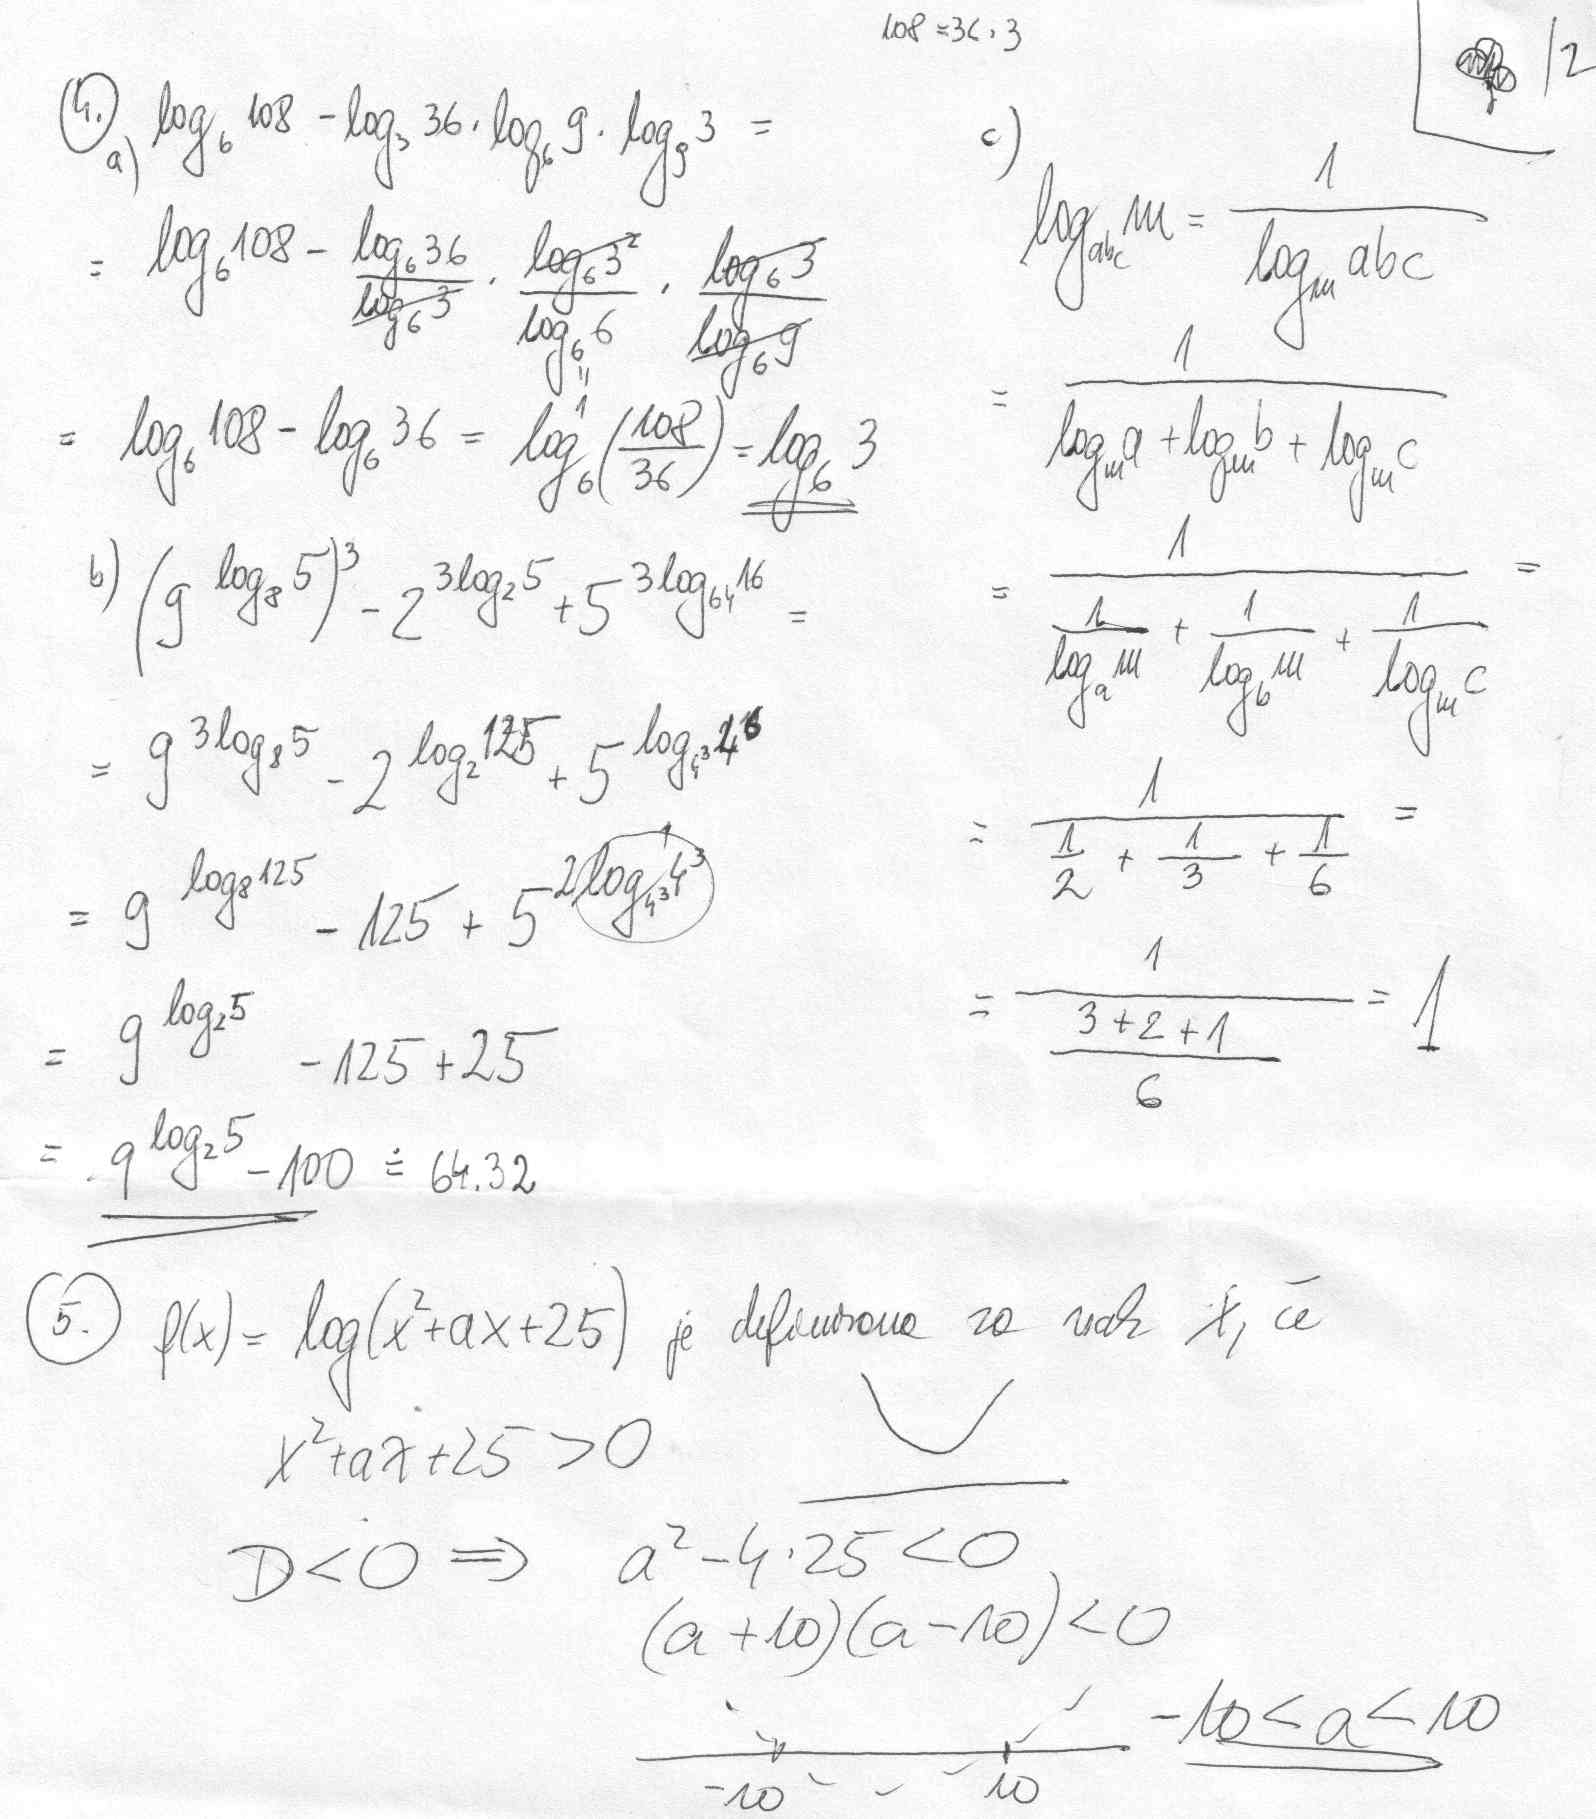 108 = 36 · 3
/2
4.
a) log₆ 108 - log₃ 36 · log₆ 9 · log₉ 3 =
= log₆ 108 - (log₆ 36)/(log₆ 3) · (log₆ 3²)/(log₆ 6) · (log₆ 3)/(log₆ 9)
" 1
= log₆ 108 - log₆ 36 = log₆ (108/36) = log₆ 3
b) (9^(log₈ 5))³ - 2^(3 log₂ 5) + 5^(3 log₆₄ 16) =
= 9^(3 log₈ 5) - 2^(log₂ 125) + 5^(log_(4³) 4⁶)
= 9^(log₈ 125) - 125 + 5^(2 log_(4³) 4³) 1
= 9^(log₂ 5) - 125 + 25
= 9^(log₂ 5) - 100 ≐ 64.32
c)
log_(abc) m = 1/(log_m abc)
= 1/(log_m a + log_m b + log_m c)
= 1/(1/(log_a m) + 1/(log_b m) + 1/(log_m c)) =
= 1/(1/2 + 1/3 + 1/6) =
= 1/((3+2+1)/6) = 1
5. f(x) = log(x² + ax + 25) je definirana za vsak x, če
x² + ax + 25 > 0
D < 0 ⇒ a² - 4 · 25 < 0
(a + 10)(a - 10) < 0
-10 < a < 10
-10 10